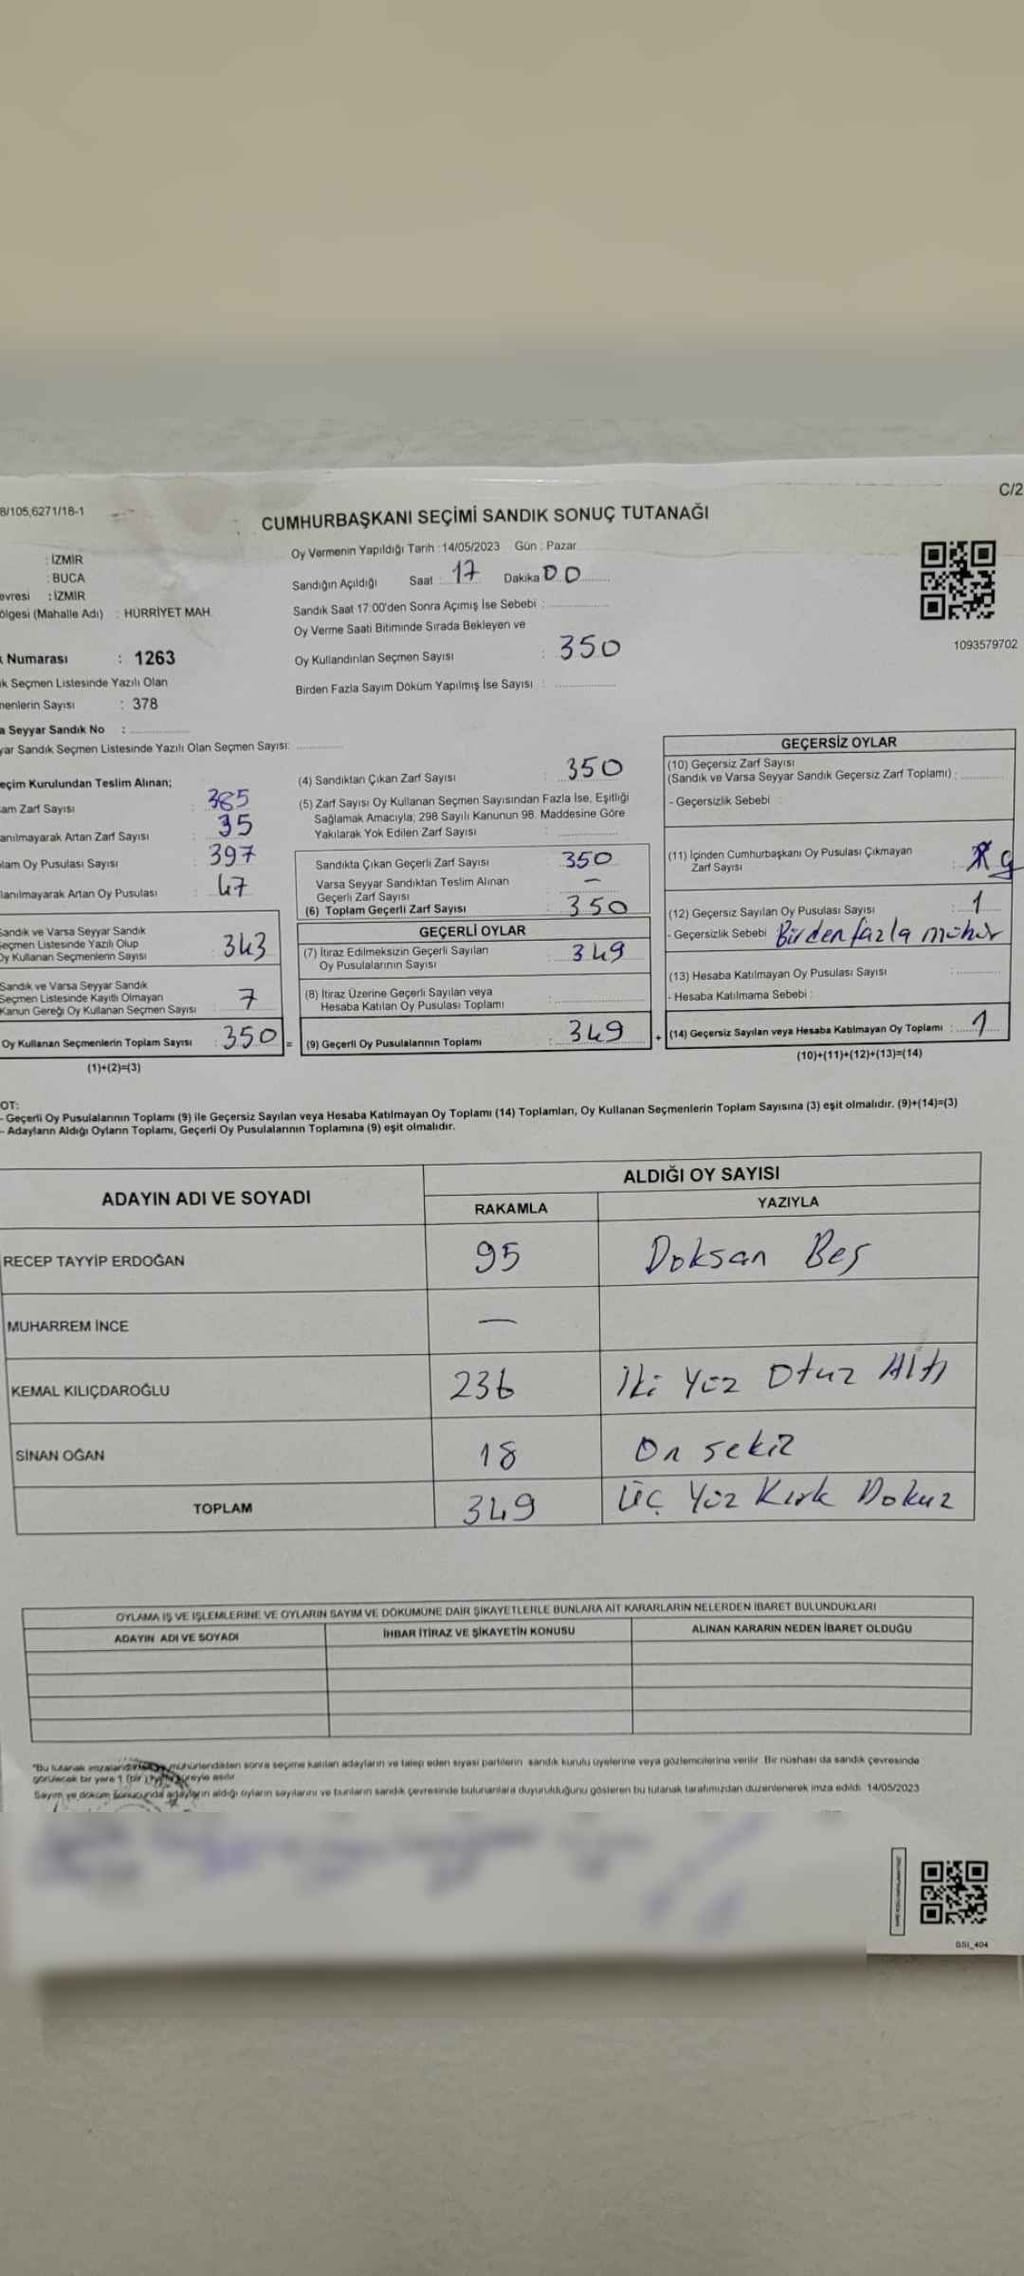 C/2
8/105,6271/18-1
CUMHURBAŞKANI SEÇİMİ SANDIK SONUÇ TUTANAĞI
: İZMİR
: BUCA
evresi : İZMİR
ölgesi (Mahalle Adı) : HÜRRİYET MAH.
k Numarası : 1263
ık Seçmen Listesinde Yazılı Olan
menlerin Sayısı : 378
a Seyyar Sandık No :
yar Sandık Seçmen Listesinde Yazılı Olan Seçmen Sayısı:
Oy Vermenin Yapıldığı Tarih : 14/05/2023 Gün : Pazar
Sandığın Açıldığı Saat 17 Dakika 00
Sandık Saat 17:00'den Sonra Açımış İse Sebebi :
Oy Verme Saati Bitiminde Sırada Bekleyen ve
Oy Kullandırılan Seçmen Sayısı : 350
Birden Fazla Sayım Döküm Yapılmış İse Sayısı :
1093579702
eçim Kurulundan Teslim Alınan;
am Zarf Sayısı : 385
anılmayarak Artan Zarf Sayısı : 35
lam Oy Pusulası Sayısı : 397
lanılmayarak Artan Oy Pusulası : 47
Sandık ve Varsa Seyyar Sandık
Seçmen Listesinde Yazılı Olup
Oy Kullanan Seçmenlerin Sayısı 343
Sandık ve Varsa Seyyar Sandık
Seçmen Listesinde Kayıtlı Olmayan
Kanun Gereği Oy Kullanan Seçmen Sayısı 7
Oy Kullanan Seçmenlerin Toplam Sayısı : 350 =
(1)+(2)=(3)
(4) Sandıktan Çıkan Zarf Sayısı : 350
(5) Zarf Sayısı Oy Kullanan Seçmen Sayısından Fazla İse, Eşitliği
Sağlamak Amacıyla; 298 Sayılı Kanunun 98. Maddesine Göre
Yakılarak Yok Edilen Zarf Sayısı :
Sandıkta Çıkan Geçerli Zarf Sayısı : 350
Varsa Seyyar Sandıktan Teslim Alınan
Geçerli Zarf Sayısı : —
(6) Toplam Geçerli Zarf Sayısı : 350
GEÇERLİ OYLAR
(7) İtiraz Edilmeksizin Geçerli Sayılan
Oy Pusulalarının Sayısı : 349
(8) İtiraz Üzerine Geçerli Sayılan veya
Hesaba Katılan Oy Pusulası Toplamı :
(9) Geçerli Oy Pusulalarının Toplamı : 349 +
GEÇERSİZ OYLAR
(10) Geçersiz Zarf Sayısı
(Sandık ve Varsa Seyyar Sandık Geçersiz Zarf Toplamı) :
- Geçersizlik Sebebi :
(11) İçinden Cumhurbaşkanı Oy Pusulası Çıkmayan
Zarf Sayısı :
(12) Geçersiz Sayılan Oy Pusulası Sayısı : 1
- Geçersizlik Sebebi Birden fazla mühür
(13) Hesaba Katılmayan Oy Pusulası Sayısı :
- Hesaba Katılmama Sebebi :
(14) Geçersiz Sayılan veya Hesaba Katılmayan Oy Toplamı : 1
(10)+(11)+(12)+(13)=(14)
OT:
- Geçerli Oy Pusulalarının Toplamı (9) ile Geçersiz Sayılan veya Hesaba Katılmayan Oy Toplamı (14) Toplamları, Oy Kullanan Seçmenlerin Toplam Sayısına (3) eşit olmalıdır. (9)+(14)=(3)
- Adayların Aldığı Oyların Toplamı, Geçerli Oy Pusulalarının Toplamına (9) eşit olmalıdır.
ADAYIN ADI VE SOYADI ALDIĞI OY SAYISI
RAKAMLA YAZIYLA
RECEP TAYYİP ERDOĞAN 95 Doksan Beş
MUHARREM İNCE —
KEMAL KILIÇDAROĞLU 236 İki Yüz Otuz Altı
SİNAN OĞAN 18 On sekiz
TOPLAM 349 Üç Yüz Kırk Dokuz
OYLAMA İŞ VE İŞLEMLERİNE VE OYLARIN SAYIM VE DÖKÜMÜNE DAİR ŞİKAYETLERLE BUNLARA AİT KARARLARIN NELERDEN İBARET BULUNDUKLARI
ADAYIN ADI VE SOYADI İHBAR İTİRAZ VE ŞİKAYETİN KONUSU ALINAN KARARIN NEDEN İBARET OLDUĞU
"Bu tutanak mühürlendikten sonra seçime katılan adayların ve talep eden siyasi partilerin sandık kurulu üyelerine veya gözlemcilerine verilir. Bir nüshası da sandık çevresinde
görülecek bir yere 1 (bir) süreyle asılır.
Sayım ve döküm sonucunda adayların aldığı oyların sayılarını ve bunların sandık çevresinde bulunanlara duyurulduğunu gösteren bu tutanak tarafımızdan düzenlenerek imza edildi. 14/05/2023
GSI_404